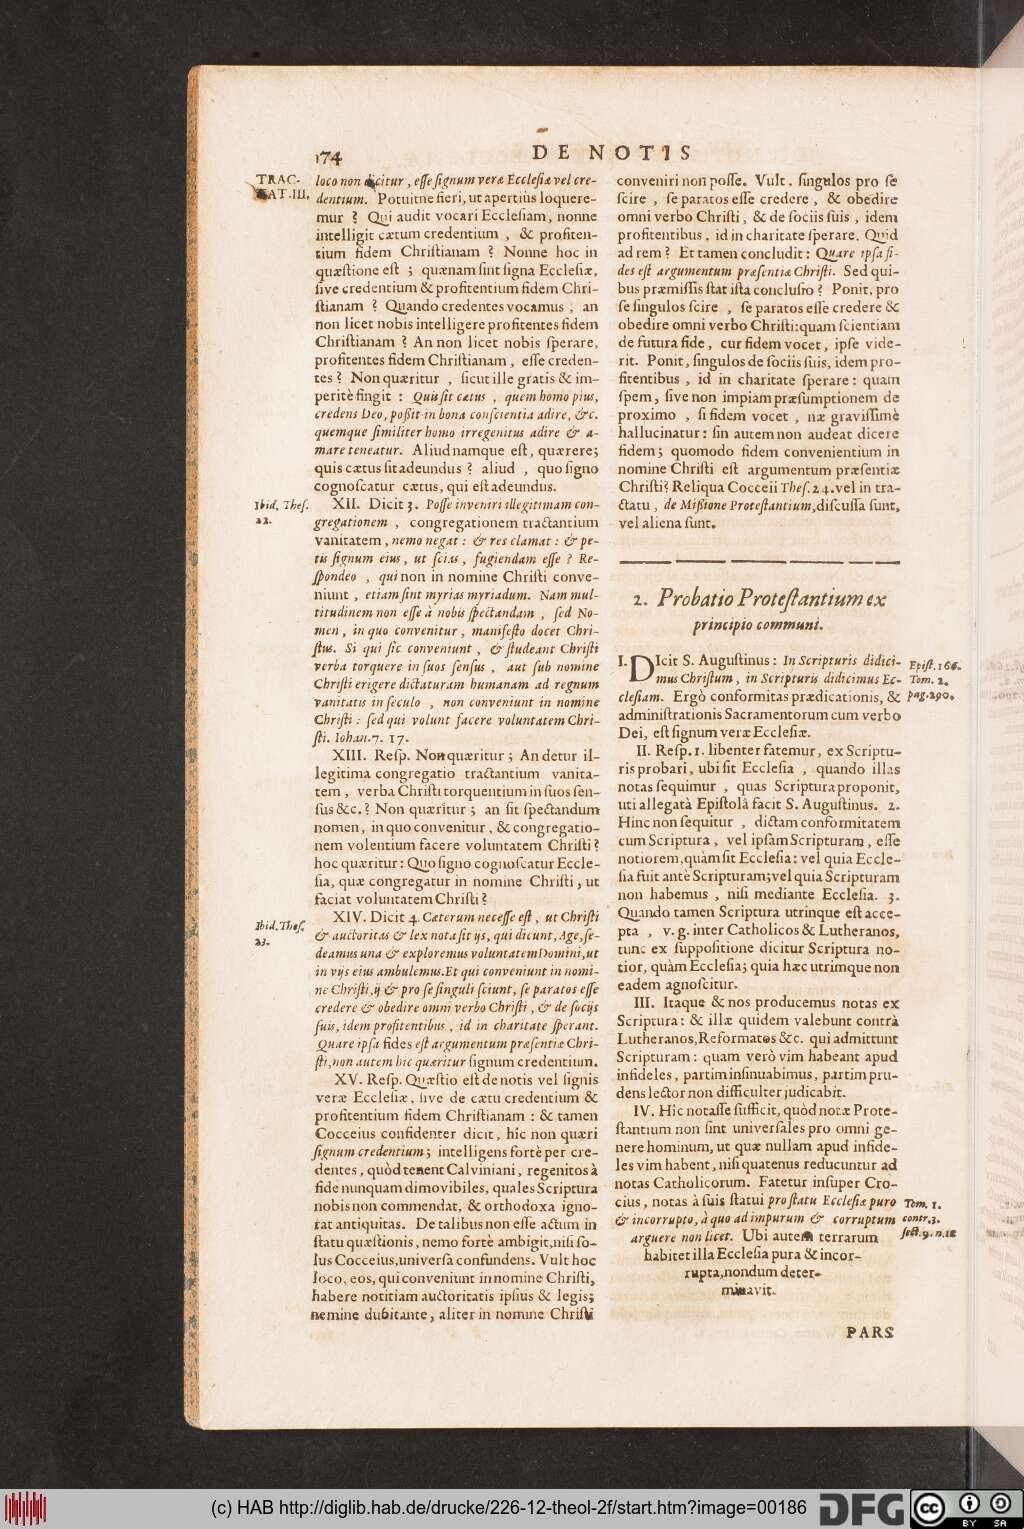 174
DE NOTIS
TRAC-
TAT.III.
loco non dicitur, eſſe ſignum veræ Eccleſiæ vel cre-
dentium. Potuitne fieri, ut apertiùs loquere-
mur ? Qui audit vocari Eccleſiam, nonne
intelligit cætum credentium , & profiten-
tium fidem Chriſtianam ? Nonne hoc in
quæſtione eſt ; quænam ſint ſigna Eccleſiæ,
ſive credentium & profitentium fidem Chri-
ſtianam ? Quando credentes vocamus , an
non licet nobis intelligere profitentes fidem
Chriſtianam ? An non licet nobis ſperare,
profitentes fidem Chriſtianam , eſſe creden-
tes ? Non quæritur , ſicut ille gratis & im-
peritè fingit : Quis ſit cætus , quem homo pius,
credens Deo, poſſit in bona conſcientia adire, &c.
quemque ſimiliter homo irregenitus adire & a-
mare teneatur. Aliud namque eſt, quærere;
quis cætus ſit adeundus ? aliud , quo ſigno
cognoſcatur cætus, qui eſt adeundus.
Ibid. Theſ.
22.
XII. Dicit 3. Poſſe inveniri illegitimam con-
gregationem , congregationem tractantium
vanitatem, nemo negat : & res clamat : & pe-
tis ſignum eius, ut ſcias, fugiendam eſſe ? Re-
ſpondeo , qui non in nomine Chriſti conve-
niunt , etiam ſint myrias myriadum. Nam mul-
titudinem non eſſe à nobis ſpectandam , ſed No-
men, in quo convenitur, manifeſto docet Chri-
ſtus. Si qui ſic conveniunt , & ſtudeant Chriſti
verba torquere in ſuos ſenſus , aut ſub nomine
Chriſti erigere dictaturam humanam ad regnum
vanitatis in ſeculo , non conveniunt in nomine
Chriſti : ſed qui volunt facere voluntatem Chri-
ſti. Iohan.7. 17.
XIII. Reſp. Non quæritur ; An detur il-
legitima congregatio tractantium vanita-
tem, verba Chriſti torquentium in ſuos ſen-
ſus &c.? Non quæritur ; an ſit ſpectandum
nomen, in quo convenitur, & congregatio-
nem volentium facere voluntatem Chriſti?
hoc quæritur: Quo ſigno cognoſcatur Eccle-
ſia, quæ congregatur in nomine Chriſti, ut
faciat voluntatem Chriſti ?
Ibid. Theſ.
23.
XIV. Dicit 4. Cæterum neceſſe eſt, ut Chriſti
& auctoritas & lex nota ſit ijs, qui dicunt, Age, ſe-
deamus una & exploremus voluntatem Domini, ut
in vijs eius ambulemus. Et qui conveniunt in nomi-
ne Chriſti, ij & pro ſe ſinguli ſciunt, ſe paratos eſſe
credere & obedire omni verbo Chriſti, & de ſocijs
ſuis, idem profitentibus, id in charitate ſperant.
Quare ipſa fides eſt argumentum præſentiæ Chri-
ſti, non autem hic quæritur ſignum credentium.
XV. Reſp. Quæſtio eſt de notis vel ſignis
veræ Eccleſiæ, ſive de cætu credentium &
profitentium fidem Chriſtianam : & tamen
Cocceius confidenter dicit, hîc non quæri
ſignum credentium ; intelligens fortè per cre-
dentes, quòd tenent Calviniani, regenitos à
fide nunquam dimovibiles, quales Scriptura
nobis non commendat, & orthodoxa igno-
rat antiquitas. De talibus non eſſe actum in
ſtatu quæſtionis, nemo fortè ambigit, niſi ſo-
lus Cocceius, univerſa confundens. Vult hoc
loco, eos, qui conveniunt in nomine Chriſti,
habere notitiam auctoritatis ipſius & legis;
nemine dubitante, aliter in nomine Chriſti
conveniri non poſſe. Vult, ſingulos pro ſe
ſcire , ſe paratos eſſe credere , & obedire
omni verbo Chriſti, & de ſociis ſuis , idem
profitentibus, id in charitate ſperare. Quid
ad rem ? Et tamen concludit : Quare ipſa fi-
des eſt argumentum præſentiæ Chriſti. Sed qui-
bus præmiſſis ſtat iſta concluſio ? Ponit, pro
ſe ſingulos ſcire , ſe paratos eſſe credere &
obedire omni verbo Chriſti: quam ſcientiam
de futura fide, cur fidem vocet, ipſe vide-
rit. Ponit, ſingulos de ſociis ſuis, idem pro-
fitentibus , id in charitate ſperare: quam
ſpem, ſive non impiam præſumptionem de
proximo , ſi fidem vocet , næ graviſſimè
hallucinatur: ſin autem non audeat dicere
fidem; quomodo fidem convenientium in
nomine Chriſti eſt argumentum præſentiæ
Chriſti? Reliqua Cocceii Theſ.24. vel in tra-
ctatu, de Miſſione Proteſtantium, diſcuſſa ſunt,
vel aliena ſunt.
2. Probatio Proteſtantium ex
principio communi.
I. DIcit S. Auguſtinus: In Scripturis didici-
mus Chriſtum, in Scripturis didicimus Ec-
cleſiam. Ergò conformitas prædicationis, &
adminiſtrationis Sacramentorum cum verbo
Dei, eſt ſignum veræ Eccleſiæ.
Epiſt.166.
Tom. 2.
pag.290.
II. Reſp.1. libenter fatemur, ex Scriptu-
ris probari, ubi ſit Eccleſia , quando illas
notas ſequimur , quas Scriptura proponit,
uti allegatâ Epiſtolâ facit S. Auguſtinus. 2.
Hinc non ſequitur , dictam conformitatem
cum Scriptura, vel ipſam Scripturam, eſſe
notiorem, quàm ſit Eccleſia: vel quia Eccle-
ſia fuit antè Scripturam; vel quia Scripturam
non habemus , niſi mediante Eccleſia. 3.
Quando tamen Scriptura utrinque eſt acce-
pta , v. g. inter Catholicos & Lutheranos,
tunc ex ſuppoſitione dicitur Scriptura no-
tior, quàm Eccleſia; quia hæc utrimque non
eadem agnoſcitur.
III. Itaque & nos producemus notas ex
Scriptura: & illæ quidem valebunt contrà
Lutheranos, Reformatos &c. qui admittunt
Scripturam : quam verò vim habeant apud
infideles, partim inſinuabimus, partim pru-
dens lector non difficulter judicabit.
IV. Hîc notaſſe ſufficit, quòd notæ Prote-
ſtantium non ſint univerſales pro omni ge-
nere hominum, ut quæ nullam apud infide-
les vim habent, niſi quatenus reducuntur ad
notas Catholicorum. Fatetur inſuper Cro-
cius, notas à ſuis ſtatui pro ſtatu Eccleſiæ puro
& incorrupto, à quo ad impurum & corruptum
arguere non licet. Ubi autem terrarum
habitet illa Eccleſia pura & incor-
rupta, nondum deter-
minavit.
Tom. 1.
contr.3.
ſect.9.n.12
PARS
(c) HAB http://diglib.hab.de/drucke/226-12-theol-2f/start.htm?image=00186
DFG
cc
BY SA